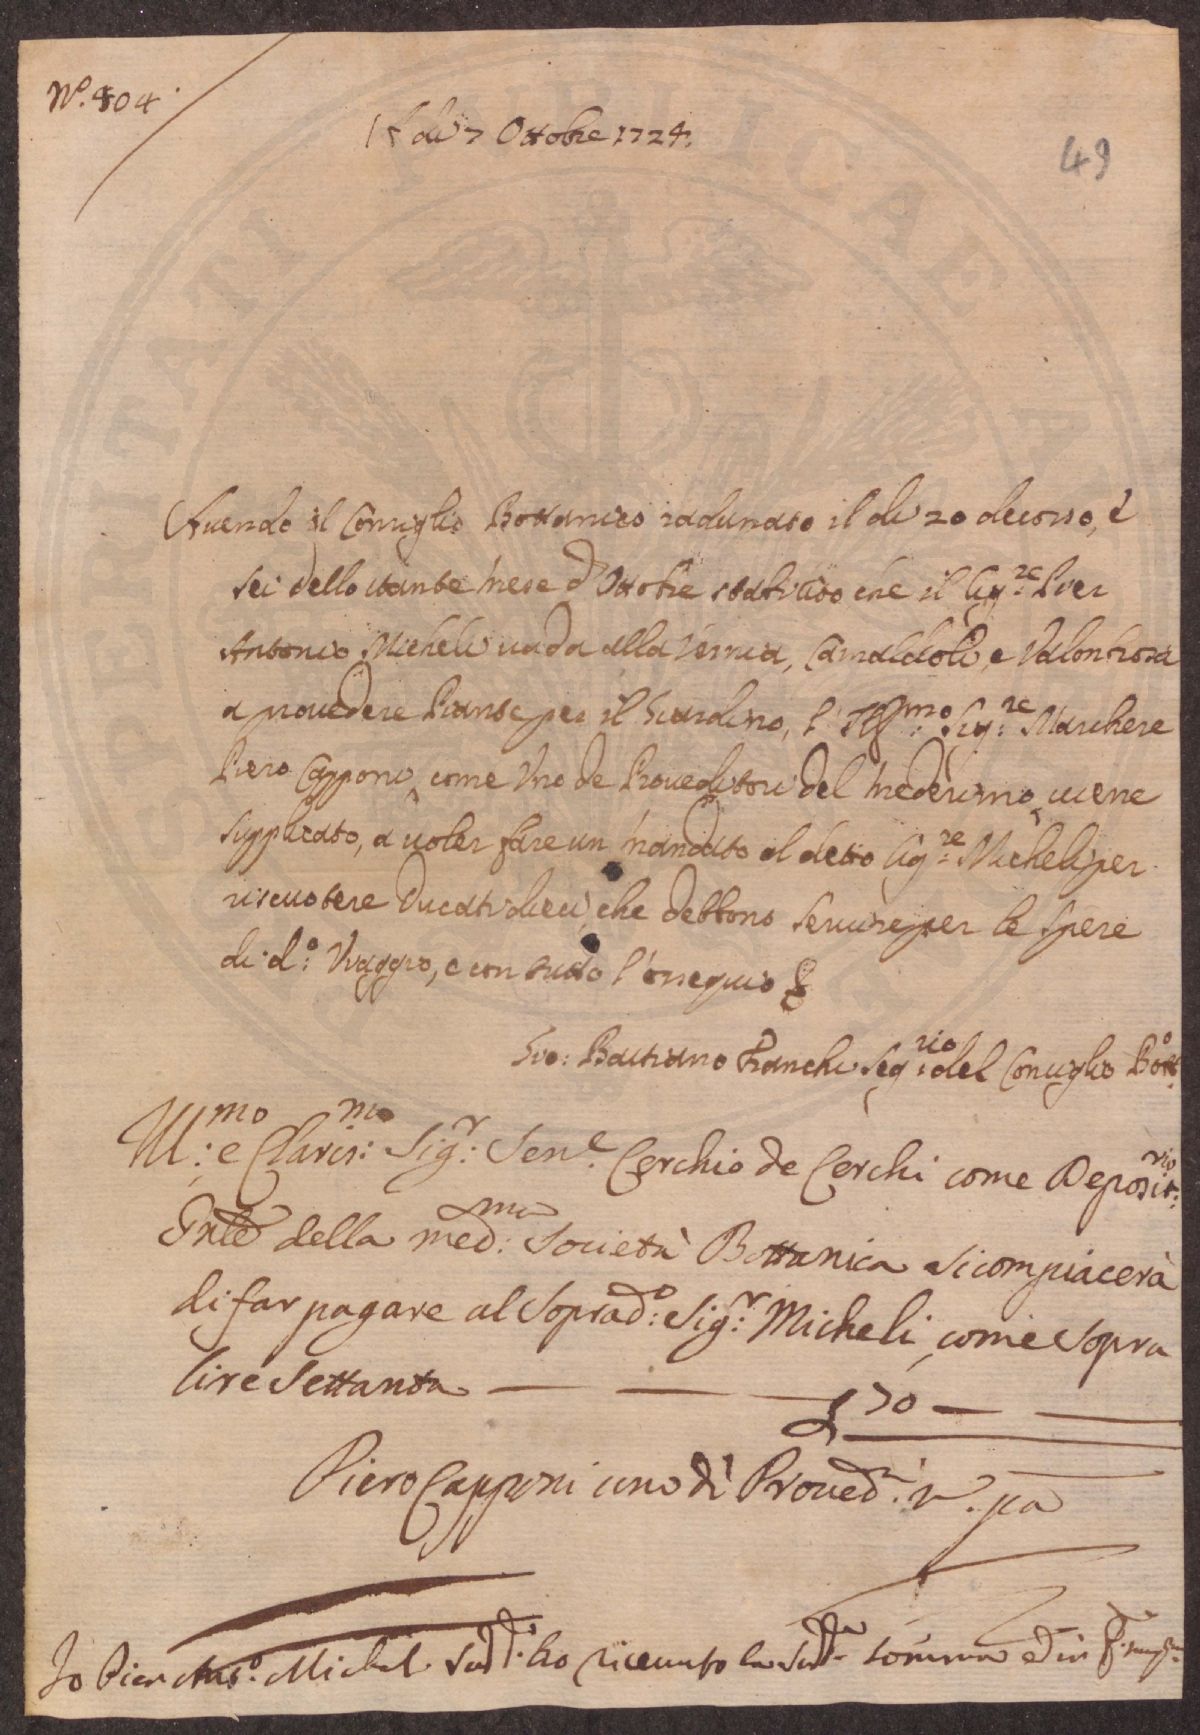 N.º 404.
49
A dì 7 Ottobre 1724.
Auendo il Consiglio Bottanico radunato il dì 20 decorso, e
sei dello stante mese d'Ottobre stabilito che il Sig:re Pier
Antonio Micheli uada alla Vernia, Camaldoli, e Valonbrosa
a prouedere Piante per il Giardino, l'Ill:mo Sig:re Marchese
Piero Capponi, come Vno de Proueditori del medesimo, uiene
supplicato, a uoler fare un mandato al detto Sig:re Micheli per
riscuotere Ducati dieci, che debbono seruire per le spese
di d:o Viaggio, e con tutto l'ossequio
Gio: Bastiano Franchi Seg:rio del Consiglio Bott:o
Ill:mo e Claris:mo Sig:r Sen:e Cerchio de Cerchi come Deposit:rio
Gnle della med:ma Società Bottanica si compiacerà
di far pagare al soprad:o Sig:r Micheli, come sopra
lire settanta — — — £ 70 — —
Piero Capponi uno di Proued:ri m. pa
Io Pier Ant:o Micheli sud:o ho riceuuto la sud:a somma ed in